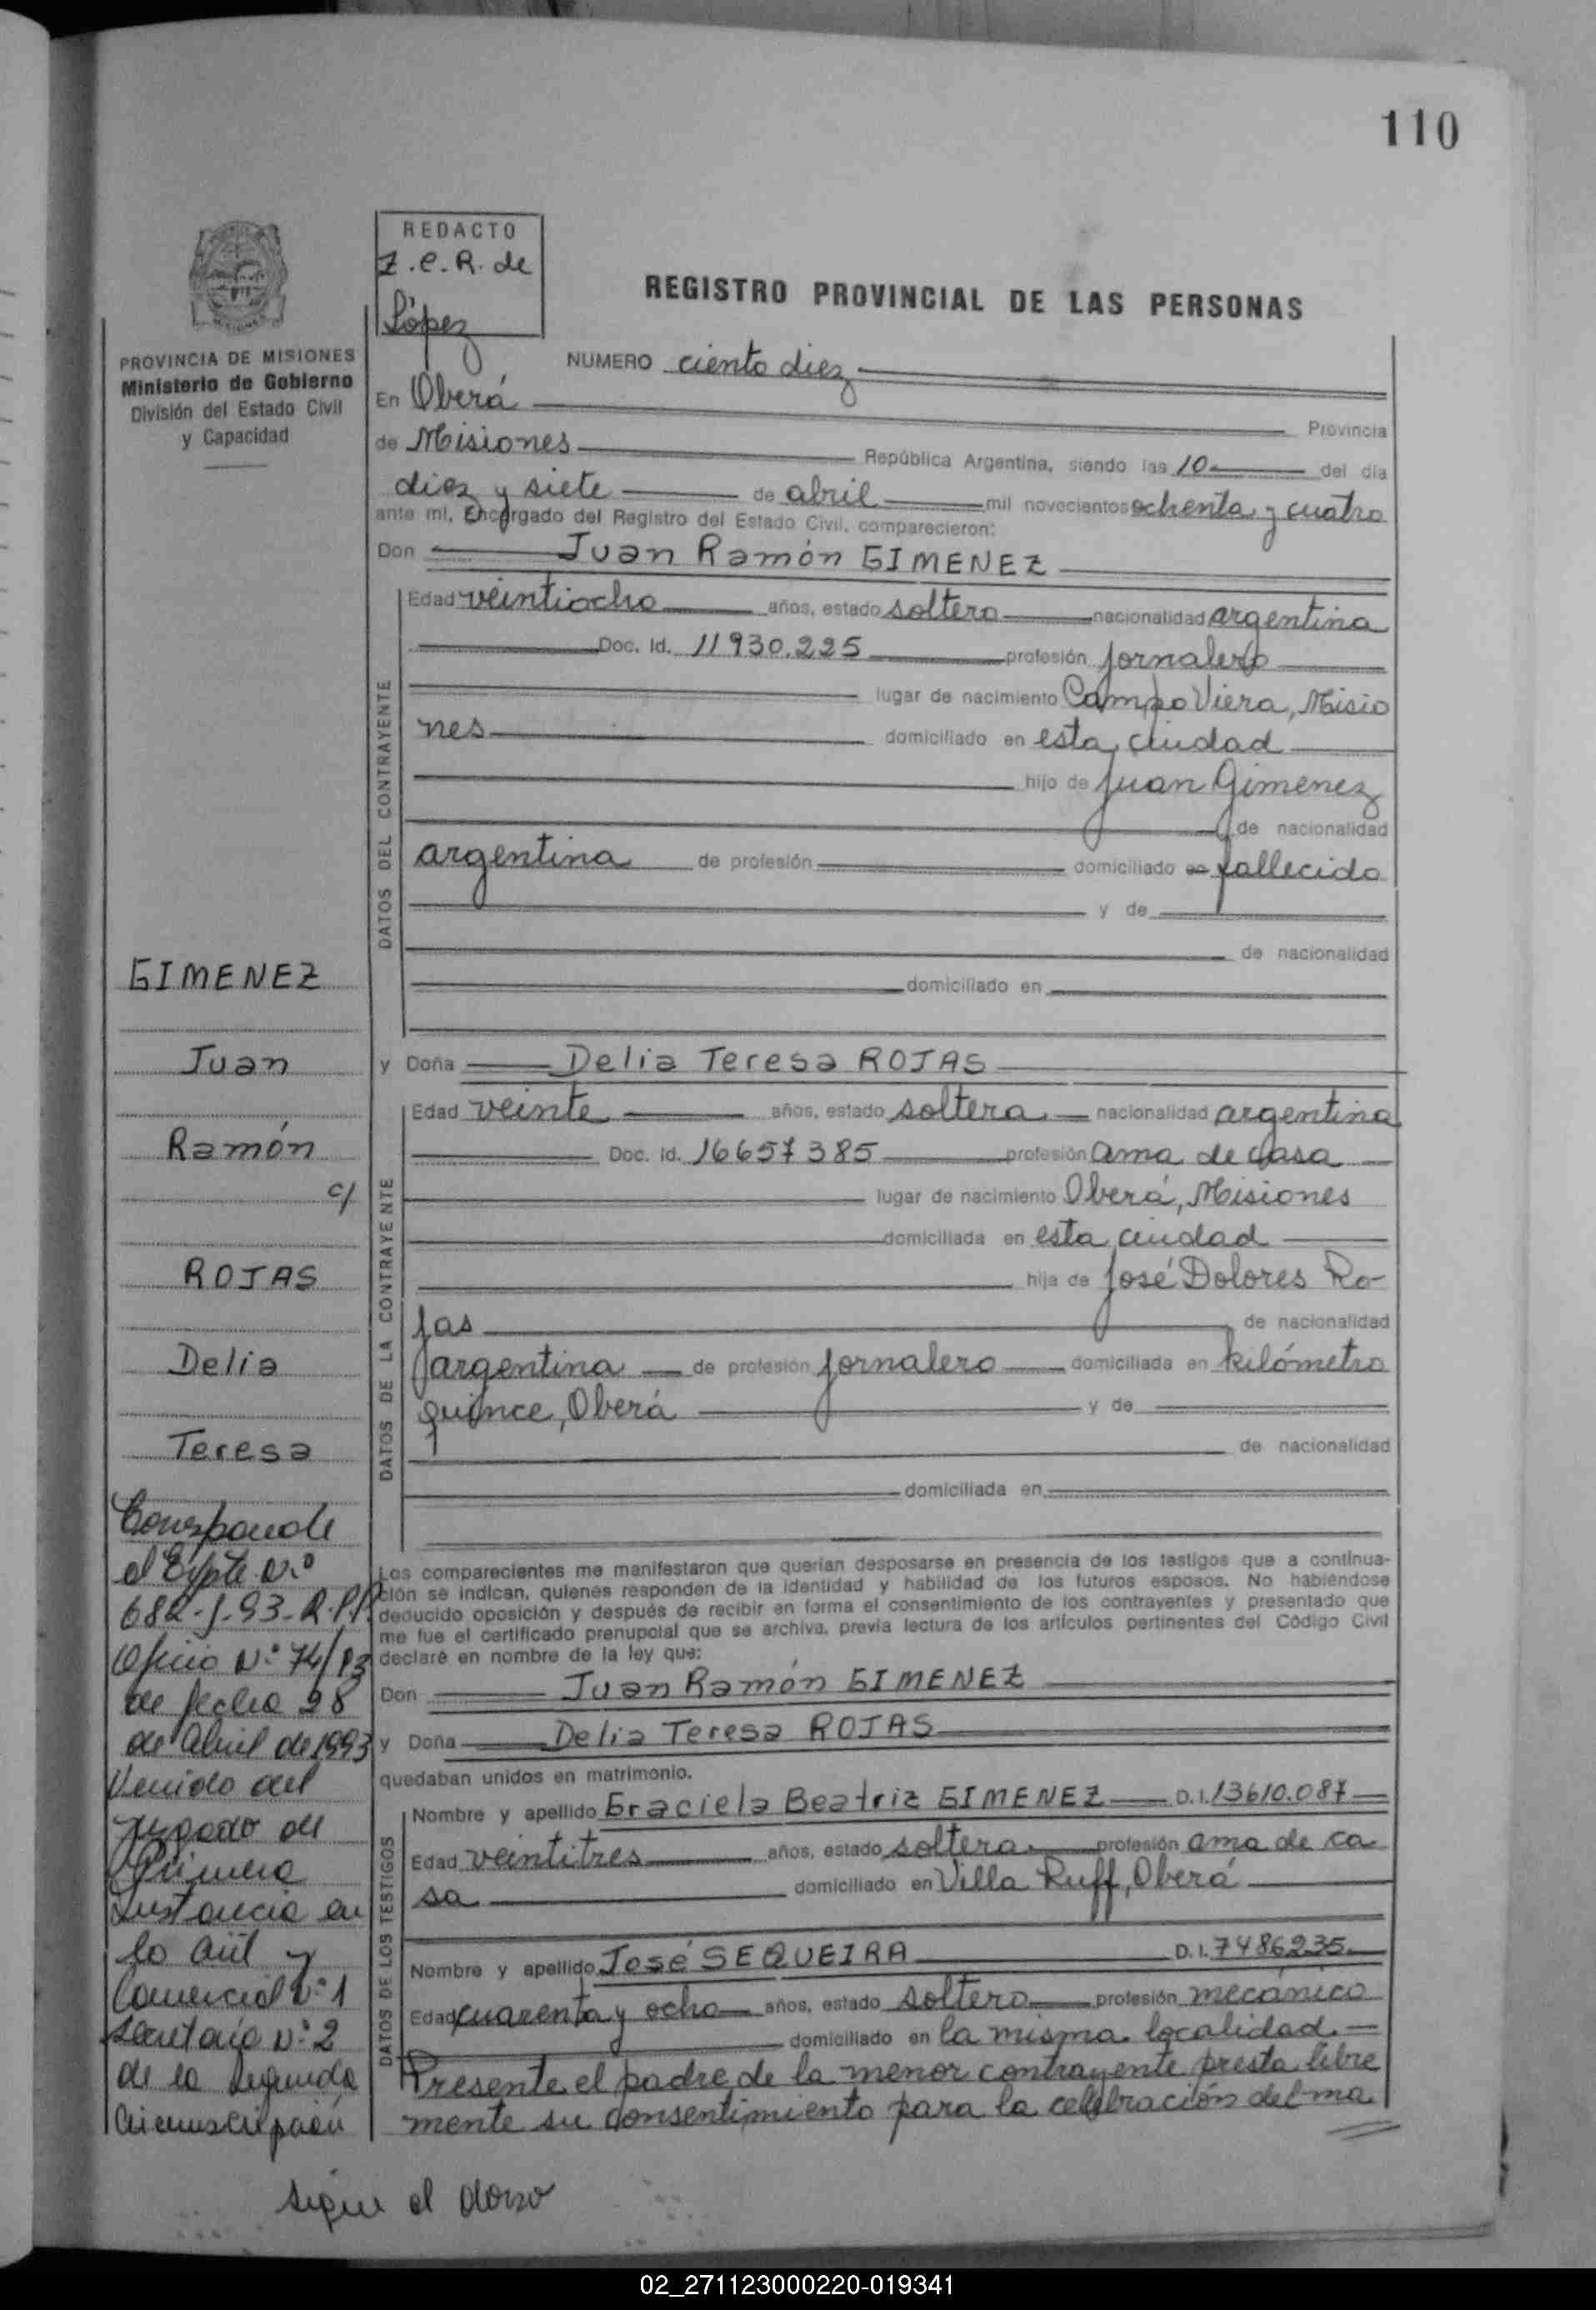 110
REDACTO
Z.C.R. de
López
REGISTRO PROVINCIAL DE LAS PERSONAS
PROVINCIA DE MISIONES
Ministerio de Gobierno
División del Estado Civil
y Capacidad
NUMERO ciento diez
En Oberá
Provincia
de Misiones República Argentina, siendo las 10 del día
diez y siete de abril mil novecientos ochenta y cuatro
ante mí, Encargado del Registro del Estado Civil, comparecieron:
Don Juan Ramón GIMENEZ
DATOS DEL CONTRAYENTE
Edad veintiocho años, estado soltero nacionalidad argentina
Doc. Id. 11930.225 profesión jornalero
lugar de nacimiento Campo Viera, Misio
nes domiciliado en esta ciudad
hijo de Juan Gimenez
de nacionalidad
argentina de profesión domiciliado en fallecido
y de
de nacionalidad
domiciliado en
y Doña Delia Teresa ROJAS
DATOS DE LA CONTRAYENTE
Edad veinte años, estado soltera nacionalidad argentina
Doc. Id. 16657385 profesión ama de casa
lugar de nacimiento Oberá, Misiones
domiciliada en esta ciudad
hija de José Dolores Ro-
jas de nacionalidad
argentina de profesión jornalero domiciliada en kilómetro
quince, Oberá y de
de nacionalidad
domiciliada en
Los comparecientes me manifestaron que querían desposarse en presencia de los testigos que a continua-
ción se indican, quienes responden de la identidad y habilidad de los futuros esposos. No habiéndose
deducido oposición y después de recibir en forma el consentimiento de los contrayentes y presentado que
me fue el certificado prenupcial que se archiva, previa lectura de los artículos pertinentes del Código Civil
declaré en nombre de la ley que:
Don Juan Ramón GIMENEZ
y Doña Delia Teresa ROJAS
quedaban unidos en matrimonio.
DATOS DE LOS TESTIGOS
Nombre y apellido Graciela Beatriz GIMENEZ D.I. 13610.087
Edad veintitres años, estado soltera profesión ama de ca
sa domiciliado en Villa Ruff, Oberá
Nombre y apellido José SEQUEIRA D.I. 7486235
Edad cuarenta y ocho años, estado soltero profesión mecánico
domiciliado en la misma localidad.—
Presente el padre de la menor contrayente presta libre
mente su consentimiento para la celebración del ma
GIMENEZ
Juan
Ramón
c/
ROJAS
Delia
Teresa
Corresponde
al Expte N°
682-J-93-R.P.P.
Oficio N° 74/93
de fecha 28
de Abril de 1993
Venido del
Juzgado de
Primera
Instancia en
lo Civil y
Comercial N° 1
Secretario N° 2
de la Segunda
Circunscripción
sigue al dorso
02_271123000220-019341